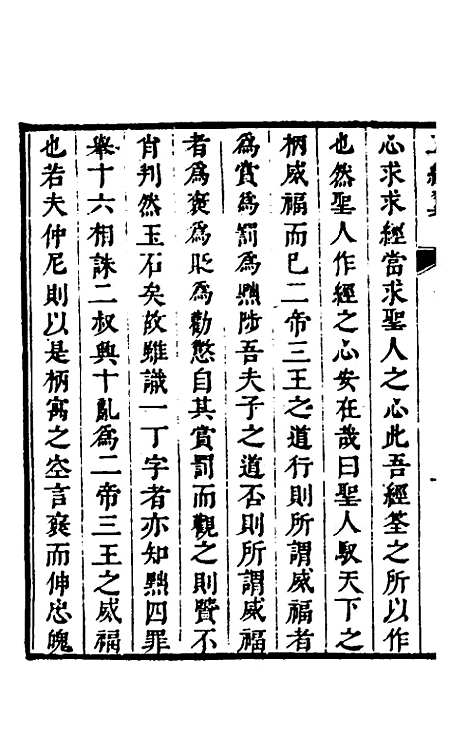 心求求經當求聖人之心此吾經筌之所以作
也然聖人作經之心安在哉曰聖人馭天下之
柄威福而已二帝三王之道行則所謂威福者
為賞為罰為黜陟吾夫子之道否則所謂威福
者為褒為貶為勸懲自其賞罰而觀之則賢不
肖判然玉石矣故雖識一丁字者亦知黜四罪
舉十六相誅二叔與十亂為二帝三王之威福
也若夫仲尼則以是柄寓之空言褒而伸忠魄